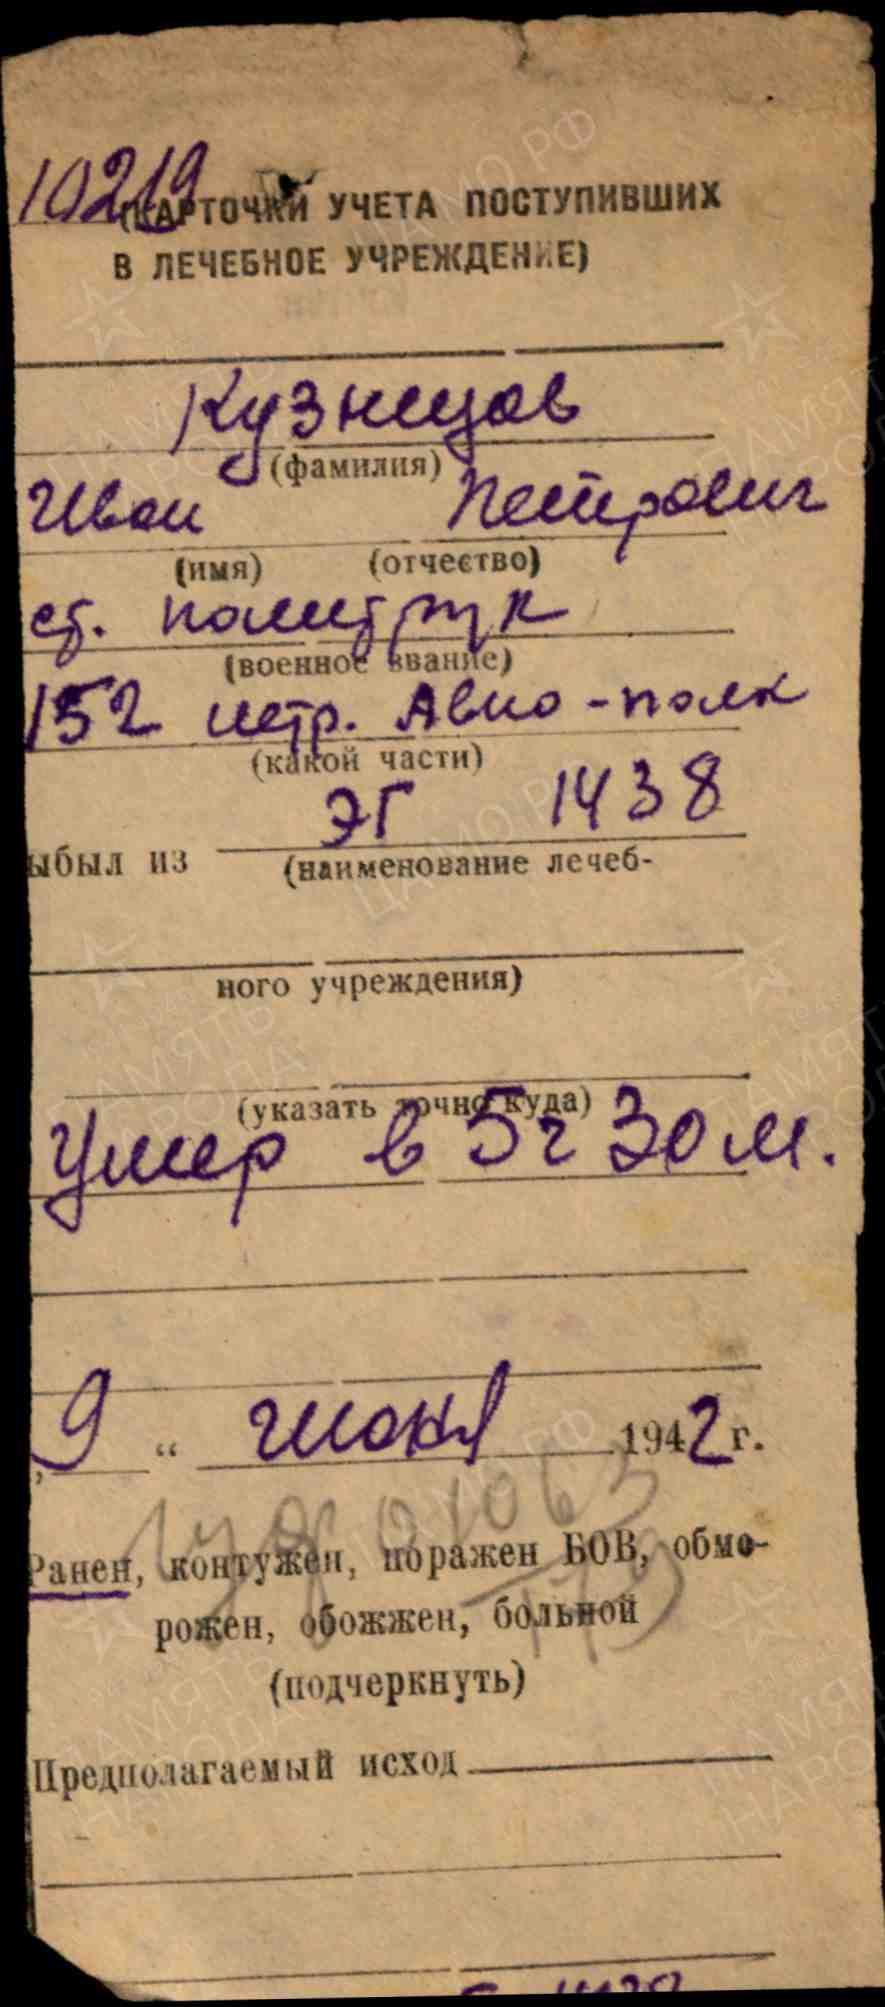 10219
(КАРТОЧКИ УЧЕТА ПОСТУПИВШИХ
В ЛЕЧЕБНОЕ УЧРЕЖДЕНИЕ)
Кузнецов
(фамилия)
Иван Петрович
(имя) (отчество)
ст. политрук
(военное звание)
152 истр. Авио-полк
(какой части)
ЭГ 1438
ыбыл из (наименование лечеб-
ного учреждения)
(указать точно куда)
Умер в 5 ч 30 м.
9 " июня 1942 г.
Ранен, контужен, поражен БОВ, обмо-
рожен, обожжен, больной
(подчеркнуть)
Предполагаемый исход